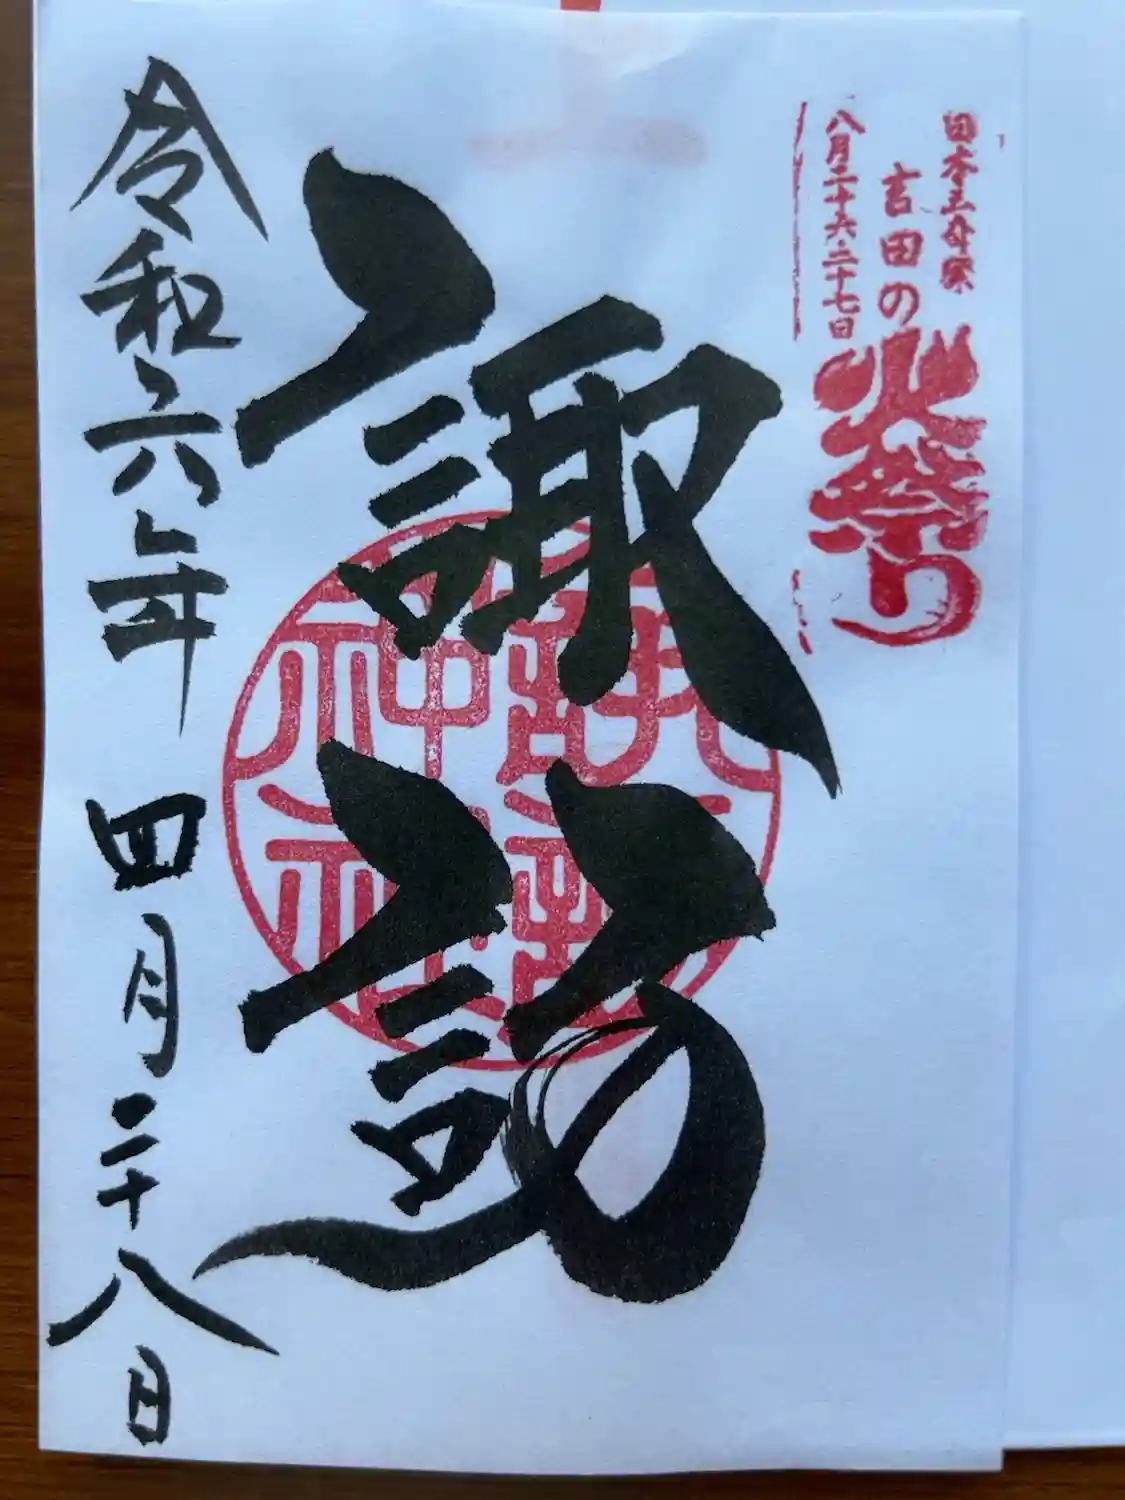 日本三奇祭
吉田の火祭り
八月二十六・二十七日
諏訪
諏訪神社
令和六年四月二十八日